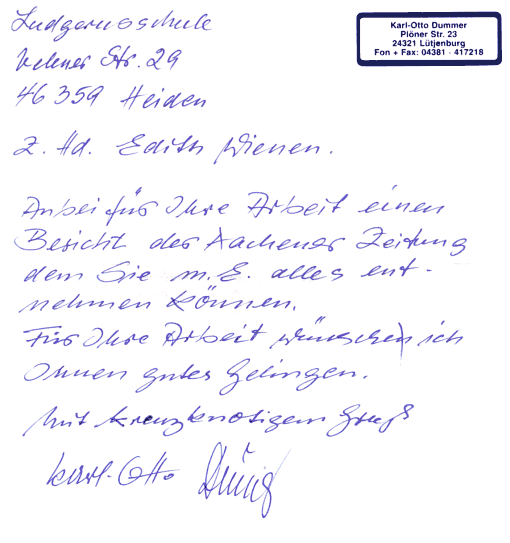 Ludgerusschule
Velener Str. 29
46359 Heiden
Karl-Otto Dummer
Plöner Str. 23
24321 Lütjenburg
Fon + Fax: 04381 - 417218
Z. Hd. Edith Wienen.
Anbei für Ihre Arbeit einen
Bericht der Aachener Zeitung
dem Sie m. E. alles ent-
nehmen können.
Für Ihre Arbeit wünsche ich
Ihnen gutes Gelingen.
Mit kreuzknotigem Gruß
Karl-Otto